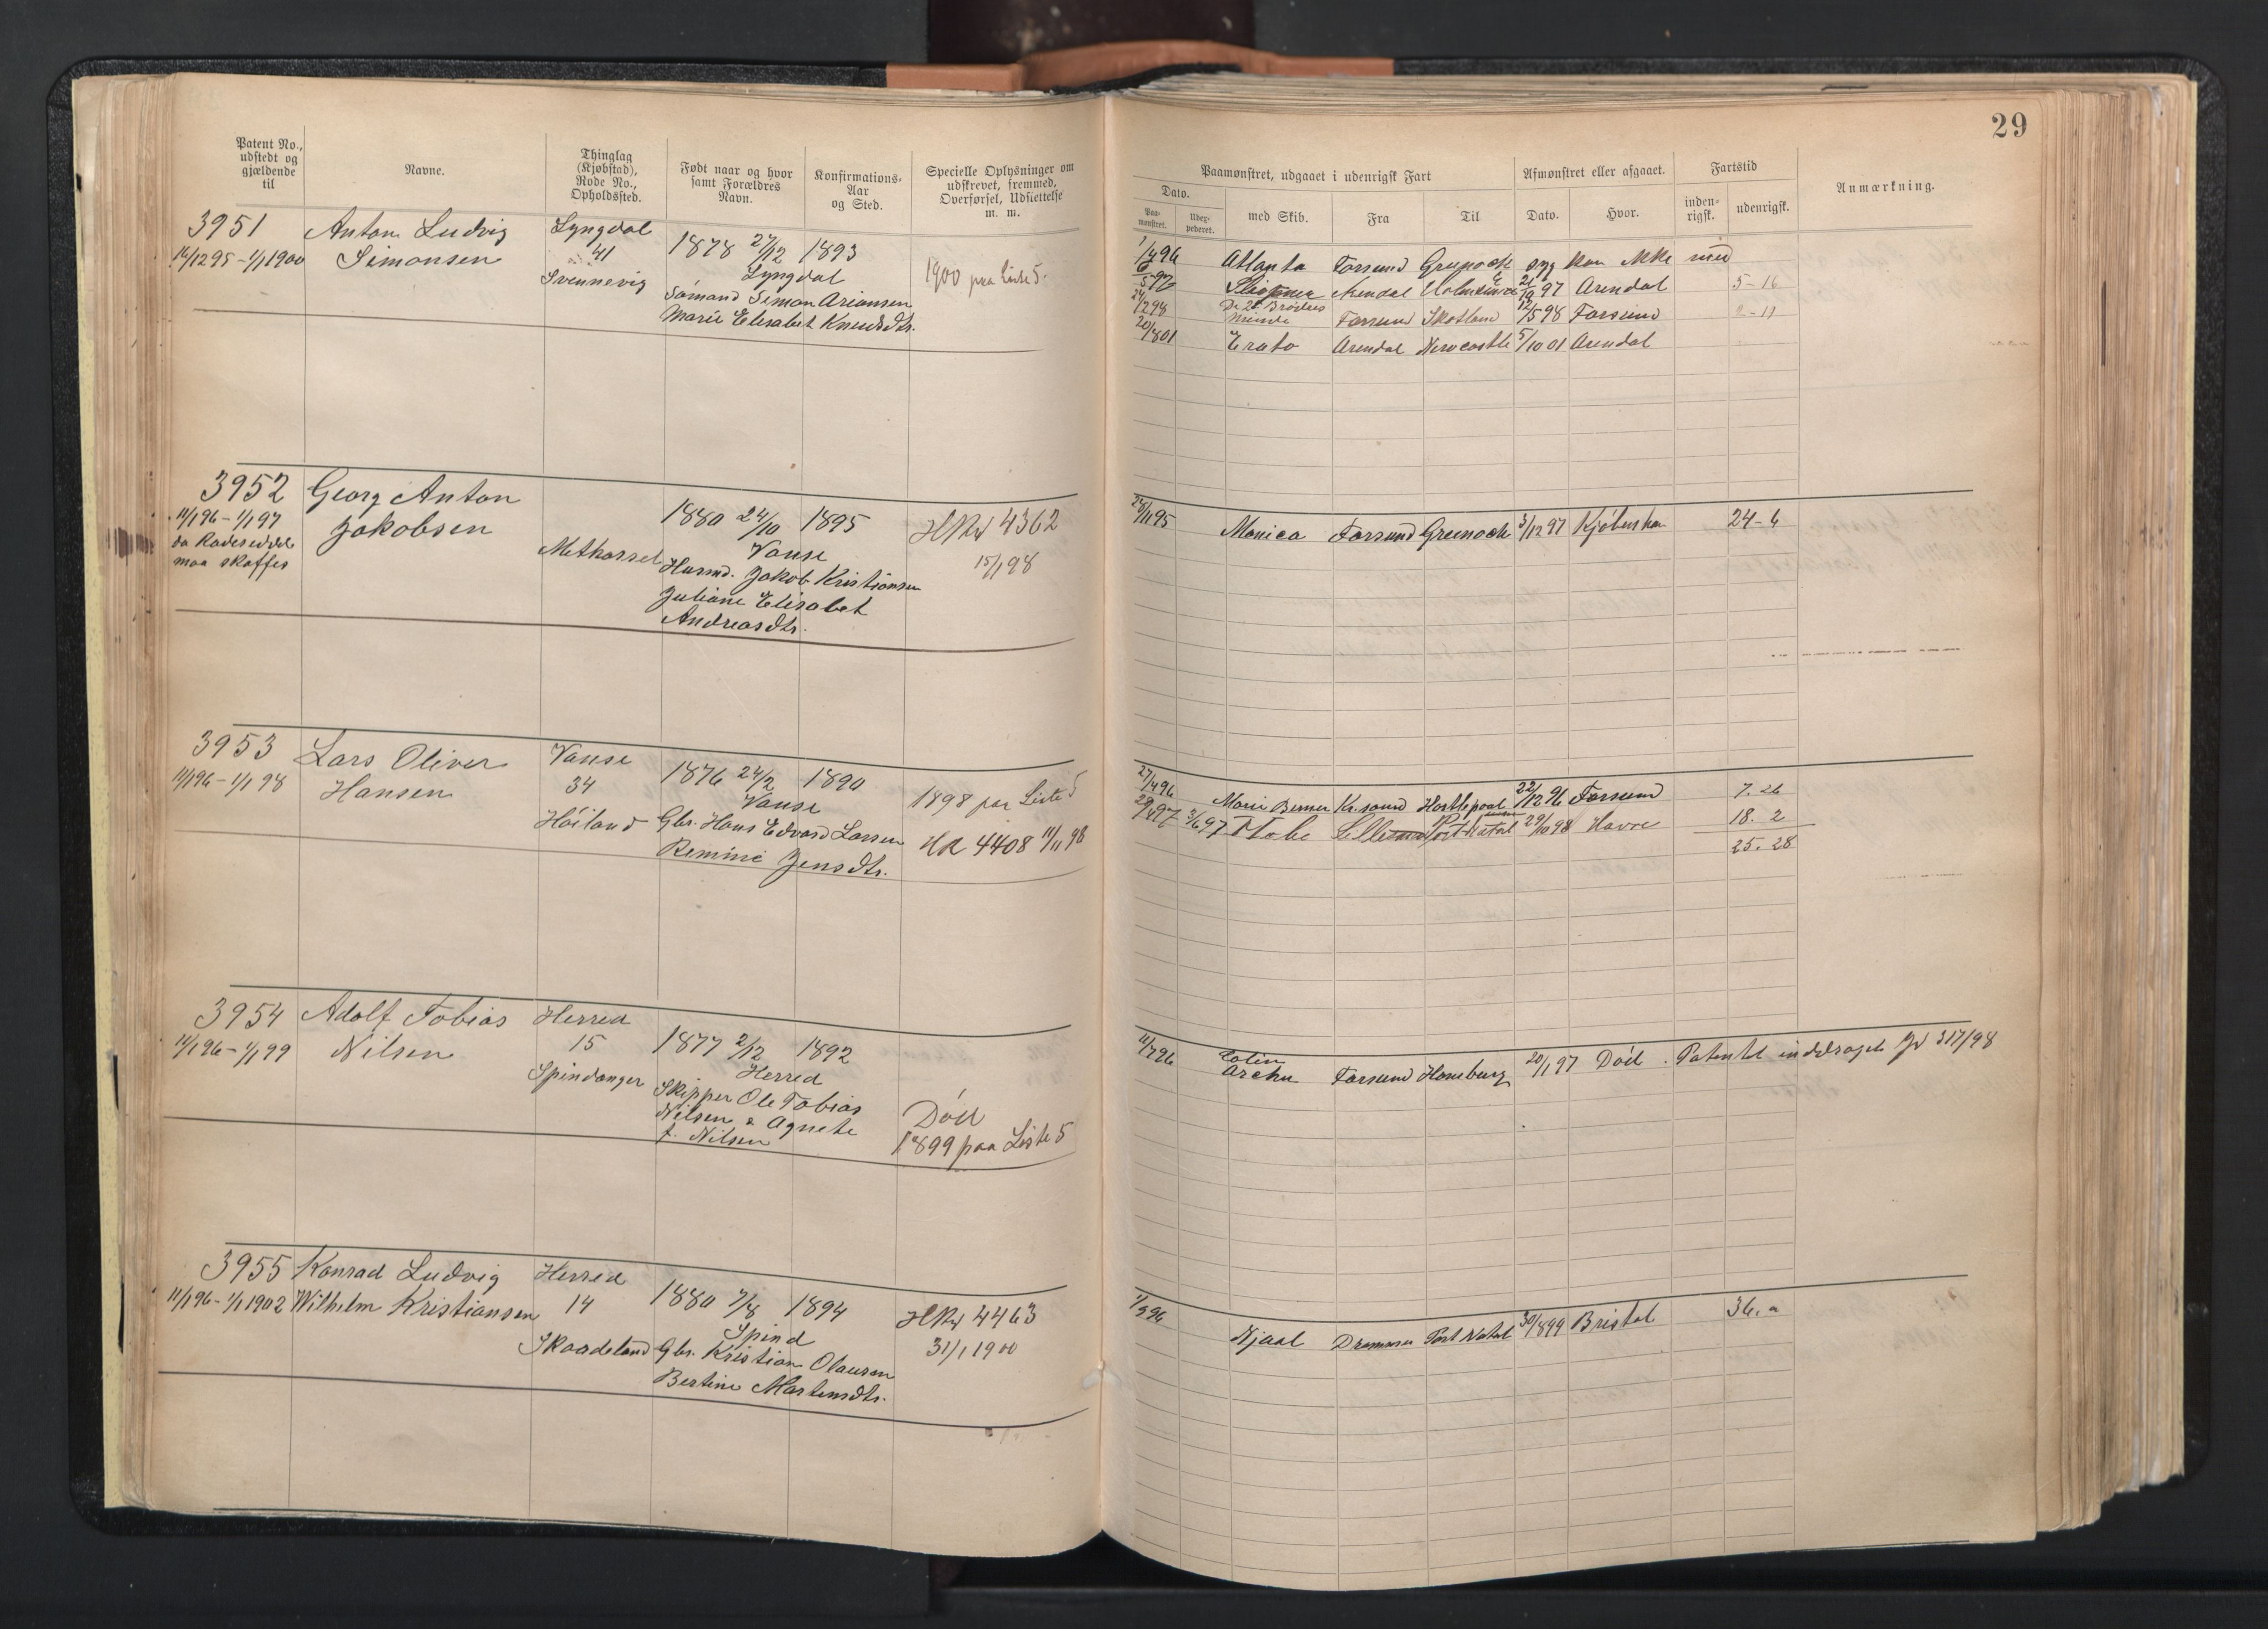 29
Patent No., udstedt og gjældende til
Navne.
Thinglag (Kjøbstad), Rode No., Opholdssted.
Født naar og hvor samt Forældres Navn.
Konfirmations-Aar og Sted.
Specielle Oplysninger om udskrevet, fremmed, Overførsel, Udsættelse m. m.
Paamønstret, udgaaet i udenrigsk Fart
Afmønstret eller afgaaet.
Fartstid
Anmærkning.
Dato.
Paa-mønstret.
med Skib.
Fra
Til
Dato.
Hvor.
inden-rigsk.
udenrigsk.
3951 Anton Ludvig Lyngdal
16/12 95 - 1/1 1900 Simonsen 41 1878 27/12 1893
Svennevig Lyngdal 1900 paa Liste 5.
Sömand Simon Ariansen
Marie Elisabet Knudsdtr.
1/4 96 Atlanta Farsund Greenock syg kan ikke med
97 Arendal 97 Arendal 5-16
2/2 98 De 2 Brödres Minde Farsund Skotland 12/5 98 Farsund 2-11
20/8 01 Erato Arendal Newcastle 5/10 01 Arendal
3952 Georg Anton
11/1 96 - 1/1 97 Jakobsen 1880 24/10 1895 HRv 4362
da Rodeseddel Vanse 15/1 98
maa skaffes Husmd. Jakob Kristiansen
Juliane Elisabet
Andreasdtr.
28/11 95 Monica Farsund Greenock 3/12 97 Kjøbenhavn 24-6
3953 Lars Oliver Vanse
11/1 96 - 1/1 98 Hansen 34 1876 24/2 1890 1898 paa Liste 5
Vanse
Höiland Gbr. Hans Edvard Larsen HR 4408 11/11 98
Remine Jensdtr.
27/4 96 Marie Berner Kr.sand Hartlepool 22/12 96 Farsund 7. 26
29/4 97 3/6 97 Port Natal 29/10 98 Havre 18. 2
25. 28
3954 Adolf Tobias Herred
11/1 96 - 1/1 99 Nilsen 15 1877 2/12 1892
Spindanger Herred
Skipper Ole Tobias
Nilsen & Agnete Död
f. Nilsen 1899 paa Liste 5
11/7 96 Colin Archer Farsund Hamburg 20/1 97 Död. Patentet inddraget Jv 317/98
3955 Konrad Ludvig Herred
11/1 96 - 1/1 1902 Wilhelm Kristiansen 14 1880 7/8 1894 HRv 4463
Spind 31/1 1900
Skaadeland Gbr. Kristian Olausen
Bertine Martensdtr.
1/9 96 Njaal Drammen Port Natal 30/8 99 Bristol 36.0